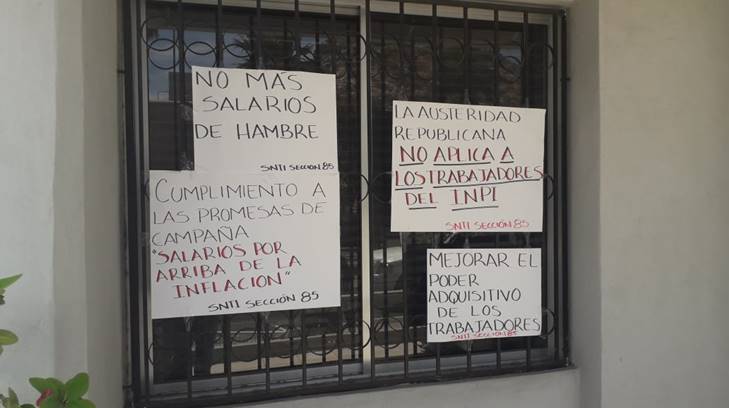 NO MÁS
SALARIOS
DE HAMBRE
SNTI SECCIÓN 85
CUMPLIMIENTO A
LAS PROMESAS DE
CAMPAÑA
"SALARIOS POR
ARRIBA DE LA
INFLACION"
SNTI SECCIÓN 85
LA AUSTERIDAD
REPUBLICANA
NO APLICA A
LOS TRABAJADORES
DEL INPI
SNTI SECCIÓN 85
MEJORAR EL
PODER
ADQUISITIVO
DE LOS
TRABAJADORES
SNTI SECCIÓN 85